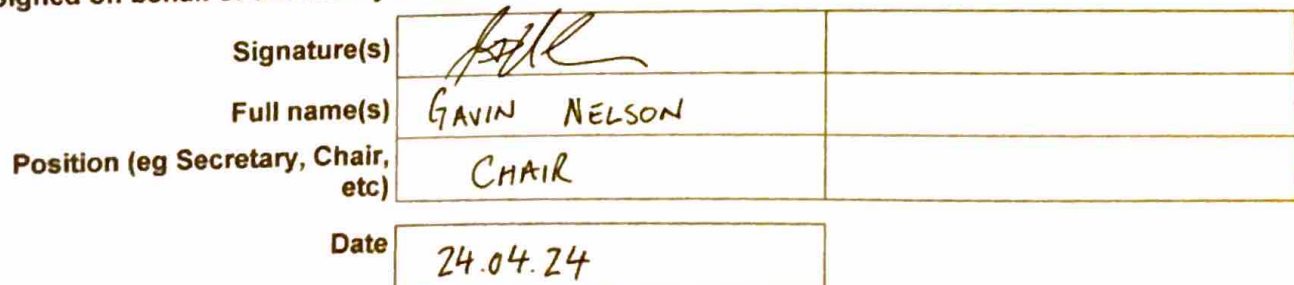 Signature(s)
Full name(s) GAVIN NELSON
Position (eg Secretary, Chair,
etc) CHAIR
Date 24.04.24